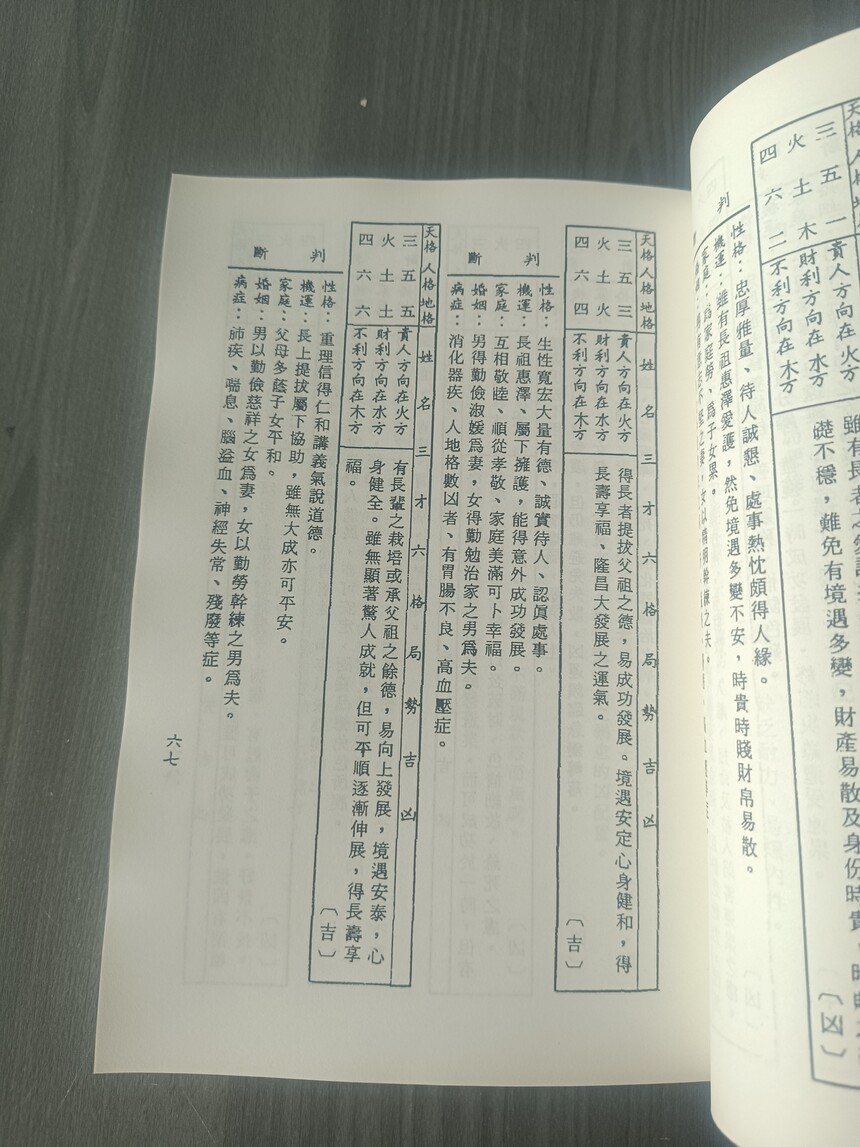 天格人格地格
三五一
火土木
四六二
貴人方向在火方
財利方向在水方
不利方向在木方
礎不穩，難免有境遇多變，財產易散及身份時貴
〔凶〕
判
性格：忠厚雅量、待人誠懇、處事熱忱頗得人緣。
機運：雖有長祖惠澤愛護，然免境遇多變不安，時貴時賤財帛易散。
家庭：為家庭勞、為子女累。
天格人格地格 姓名三才六格局勢吉凶
三五三
火土火
四六四
貴人方向在火方
財利方向在水方
不利方向在木方
得長者提拔父祖之德，易成功發展。境遇安定心身健和，得
長壽享福、隆昌大發展之運氣。
〔吉〕
判斷
性格：生性寬宏大量有德、誠實待人、認眞處事。
機運：長祖惠澤、屬下擁護，能得意外成功發展。
家庭：互相敬睦、順從孝敬、家庭美滿可卜幸福。
婚姻：男得勤儉淑媛爲妻，女得勤勉治家之男爲夫。
病症：消化器疾、人地格數凶者、有胃腸不良、高血壓症。
天格人格地格 姓名三才六格局勢吉凶
三五五
火土土
四六六
貴人方向在火方
財利方向在水方
不利方向在木方
有長輩之栽培或承父祖之餘德，易向上發展，境遇安泰，心
身健全。雖無顯著驚人成就，但可平順逐漸伸展，得長壽享
福。
〔吉〕
判斷
性格：重理信得仁和講義氣說道德。
機運：長上提拔屬下協助，雖無大成亦可平安。
家庭：父母多蔭子女平和。
婚姻：男以勤儉慈祥之女爲妻，女以勤勞幹練之男爲夫。
病症：肺疾、喘息、腦溢血、神經失常、殘廢等症。
六七